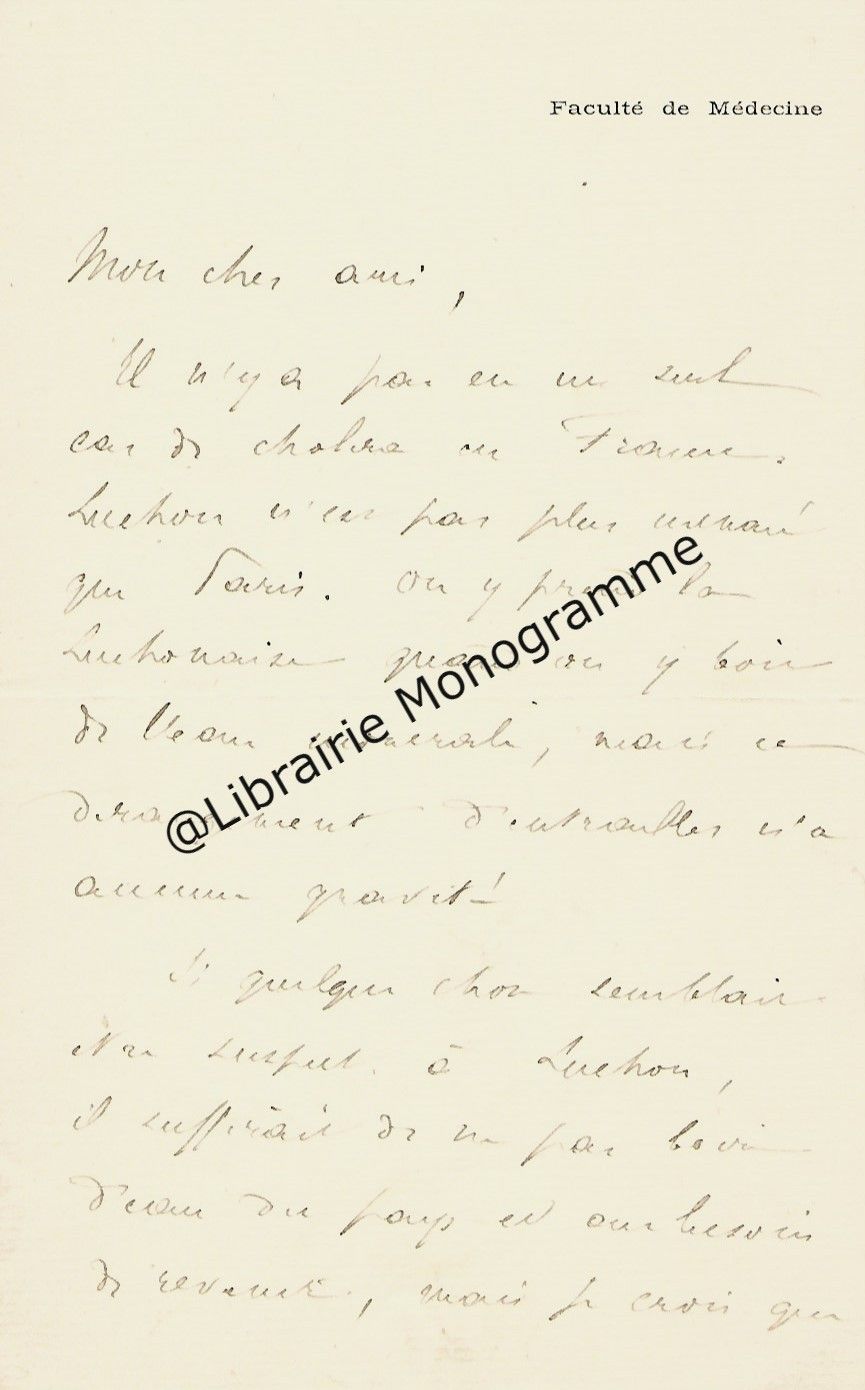 Faculté de Médecine
Mon cher ami,
Il n'y a pas eu un seul
cas de choléra en France.
Luchon n'est pas plus menacé
que Paris. On y prend la
Luchonaise quand on y boit
de l'eau minérale, mais ce
dérangement d'entrailles n'a
aucune gravité
Si quelque chose semblait
être suspect à Luchon,
il suffirait de ne pas boire
d'eau du pays et au besoin
de revenir, mais je crois que
@Librairie Monogramme